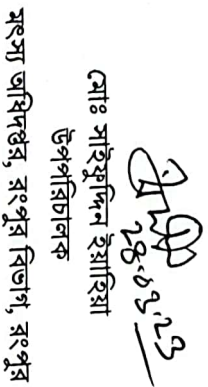 ২৪.০৩.২৩
মোঃ সাইফুদ্দিন ইয়াহিয়া
উপপরিচালক
মৎস্য অধিদপ্তর, রংপুর বিভাগ, রংপুর